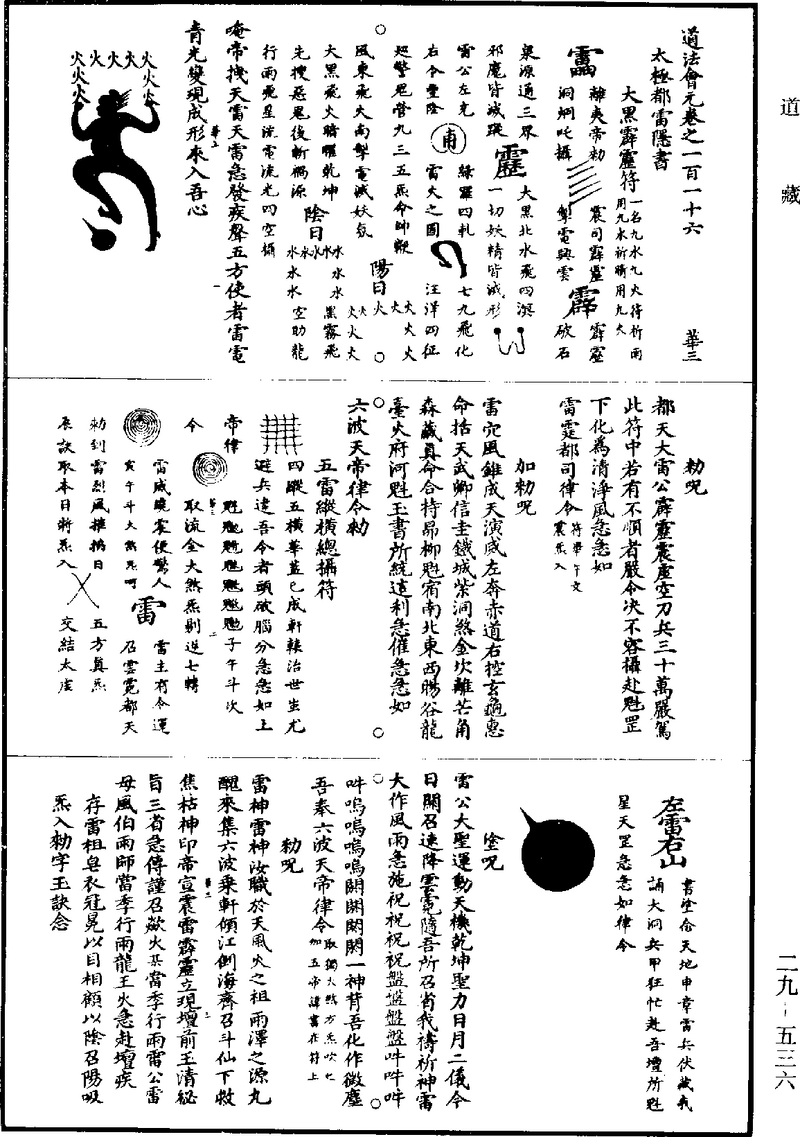 道藏
道法會元卷之一百一十六 華三
太極都雷隱書
大黑霹靂符一名九水九火符祈雨用九水祈晴用九火
雷
離夷帝勑 震司霹靂 霹靂
洞炯吒攝 掣電興雲 破石
霹
泉源通三界 大黑北水飛四溟
邪魔皆滅蹤 靈 一切妖精皆滅形
雷公左充 綠羅四軋 七九飛化
右令豐隆 雷火之圓 汪洋四征
廵警思管九三五炁命帥鞭
風東飛火南掣電滅妖氛 陽日火 火火火
大黑飛火晴曜乾坤 火火火火
先搜惡鬼後斬禍源 陰日 水水水水水 黑霧飛
行雨飛星流電流光四空攝 水水水 空助龍
唵帝拽天雷天雷急發疾聲五方使者雷電
青光變現成形來入吾心
火火火火火火火火火
勑呪
都天大雷公霹靂震虛空刀兵三十萬嚴駕
此符中若有不順者嚴令決不容攝赴魁罡
下化為清淨風急急如
雷霆都司律令符華午文震炁入
加勑呪
雷宂風雖成天演威左奔赤道右控玄龜惠
命括天武卿信圭鐵城紫洞煞金坎離芒角
森藏真命合持昴柳魁宿南北東西暘谷龍
臺火府河魁玉書所統遠利急催急急如
六波天帝律令勑
五雷縱橫總攝符
四蹤五橫華蓋已成軒轅治世蚩尤
避兵違吾令者頭破腦分急急如上
帝律 子午斗次
令 取流金大然炁剔送七轉
雷威曉震便驚人 雷主有令運
寅午斗大然炁呵 雷 召雲霓都天
勑到雷烈風摧捣日 五方真炁
辰訣取本日將炁入 交結太虛
左雷右山 書塗命天地申章雷兵伏藏我
誦大洞兵甲狂忙赴吾壇所魁
星天罡急急如律令
塗呪
雷公大聖運動天機乾坤聖力日月二儀今
日關召速降雲霓隨吾所召省我禱祈神雷
大作風雨急施祝祝祝祝盤盤盤盤吽吽吽
吽嗚嗚嗚嗚闕闕闕闕一神背吾化作微塵
吾奉六波天帝律令取獨火然方炁吹七加五帝諱書在符上
勑呪
雷神雷神汝職於天風火之祖雨澤之源九
醜來集六波乘軒傾江倒海齊召斗仙下救
焦枯神印帝宣震雷霹靂立現壇前玉清秘
旨三省急傳謹召歘火某當季行雨雷公雷
母風伯雨師當季行雨龍王火急赴壇疾
存雷祖皂衣冠冕以目相顧以陰召陽吸
炁入勑字玉訣念
二九－五三六